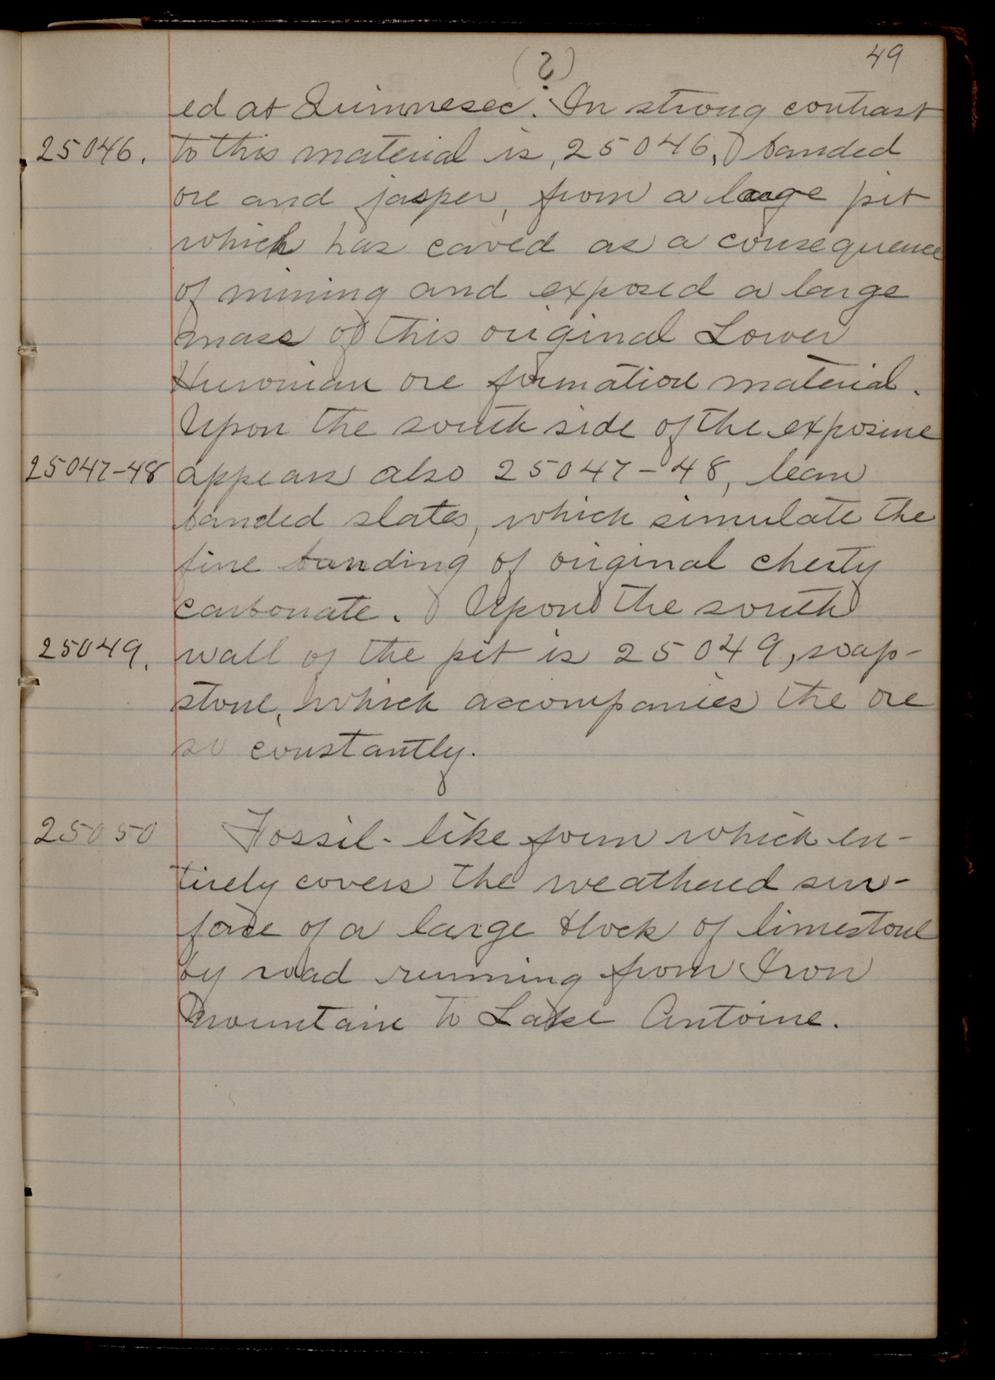 49
(?)
ed at Quinnesec. In strong contrast
25046. to this material is, 25046, banded
ore and jasper, from a large pit
which has caved as a consequence
of mining and exposed a large
mass of this original Lower
Huronian ore formation material.
Upon the south side of the exposure
25047-48 appears also 25047-48, lean
banded slates, which simulate the
fine banding of original cherty
carbonate. Upon the south
25049. wall of the pit is 25049, soap-
stone, which accompanies the ore
so constantly.
25050 Fossil-like form which en-
tirely covers the weathered sur-
face of a large block of limestone
by road running from Iron
Mountain to Lake Antoine.